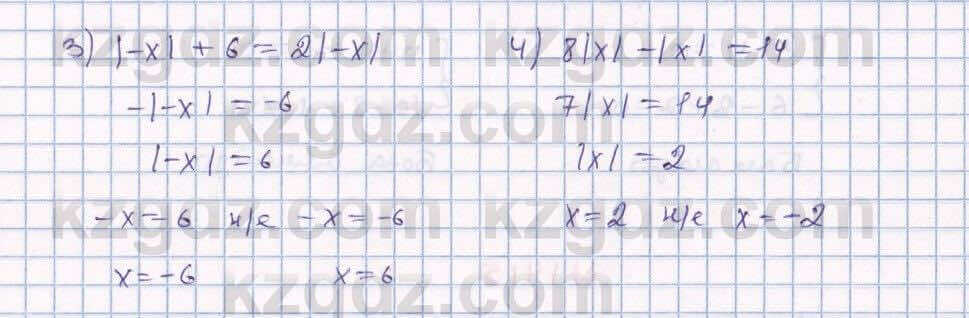 3) |-x| + 6 = 2|-x|
-|-x| = -6
|-x| = 6
-x = 6 н/е -x = -6
x = -6 x = 6
4) 8|x| - |x| = 14
7|x| = 14
|x| = 2
x = 2 н/е x = -2
kzgdz.com kzgdz.com
kzgdz.com
kzgdz.com kzgdz.com
kzgdz.com